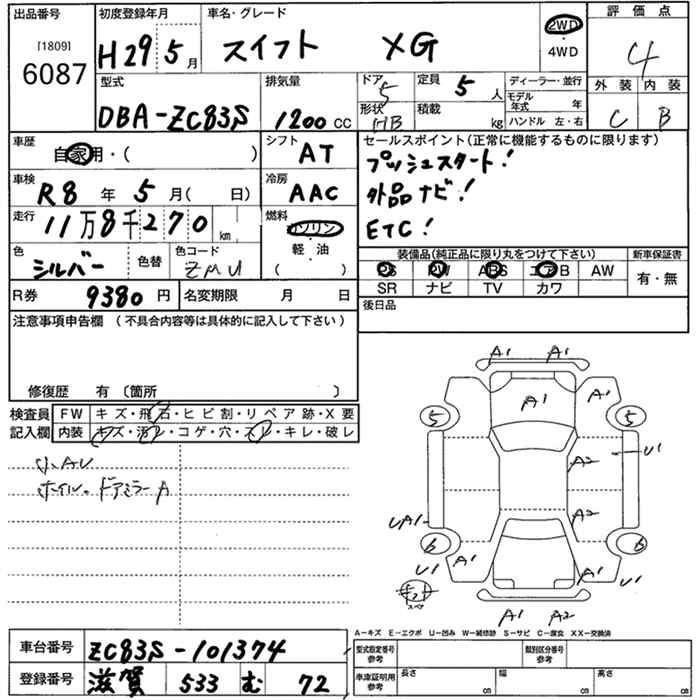 出品番号
[1809]
6087
初度登録年月
H29 5月
車名・グレード
スイフト XG
2WD
・
4WD
評価点
4
外装 内装
C B
型式
DBA-ZC83S
排気量
1200 CC
ドア 5
形状 HB
定員 5人
積載 kg
ディーラー・並行
モデル年式 年
ハンドル 左・右
車歴
自家用・( )
シフト
AT
セールスポイント(正常に機能するものに限ります)
プッシュスタート!
外品ナビ!
ETC!
車検
R8年 5月( 日)
冷房
AAC
走行
11万8千270km
燃料
ガソリン
・
軽油
・
( )
色
シルバー
色替
色コード
ZMU
装備品(純正品に限り丸をつけて下さい)
PS PW ABS エアB AW
SR ナビ TV カワ
新車保証書
有・無
R券 9380円
名変期限 月 日
後日品
注意事項申告欄 (不具合内容等は具体的に記入して下さい)
修復歴 有 〔箇所 〕
検査員
記入欄
FW キズ・飛石・ヒビ割・リペア跡・X要
内装 キズ・汚レ・コゲ・穴・スレ・キレ・破レ
小AU
ホイル。ドアミラーA
A1 A1
A1 A1
5 5
A2 U1
A2
UA1
6 6
U1 A1 A1 U1
スペア
A1 A2
A-キズ E-エクボ U-凹み W-補修跡 S-サビ C-腐食 XX-交換済
車台番号 ZC83S-101374
登録番号 滋賀 533 む 72
型式指定番号
参考
類別区分番号
参考
車庫証明用
参考
長さ cm
幅 cm
高さ cm